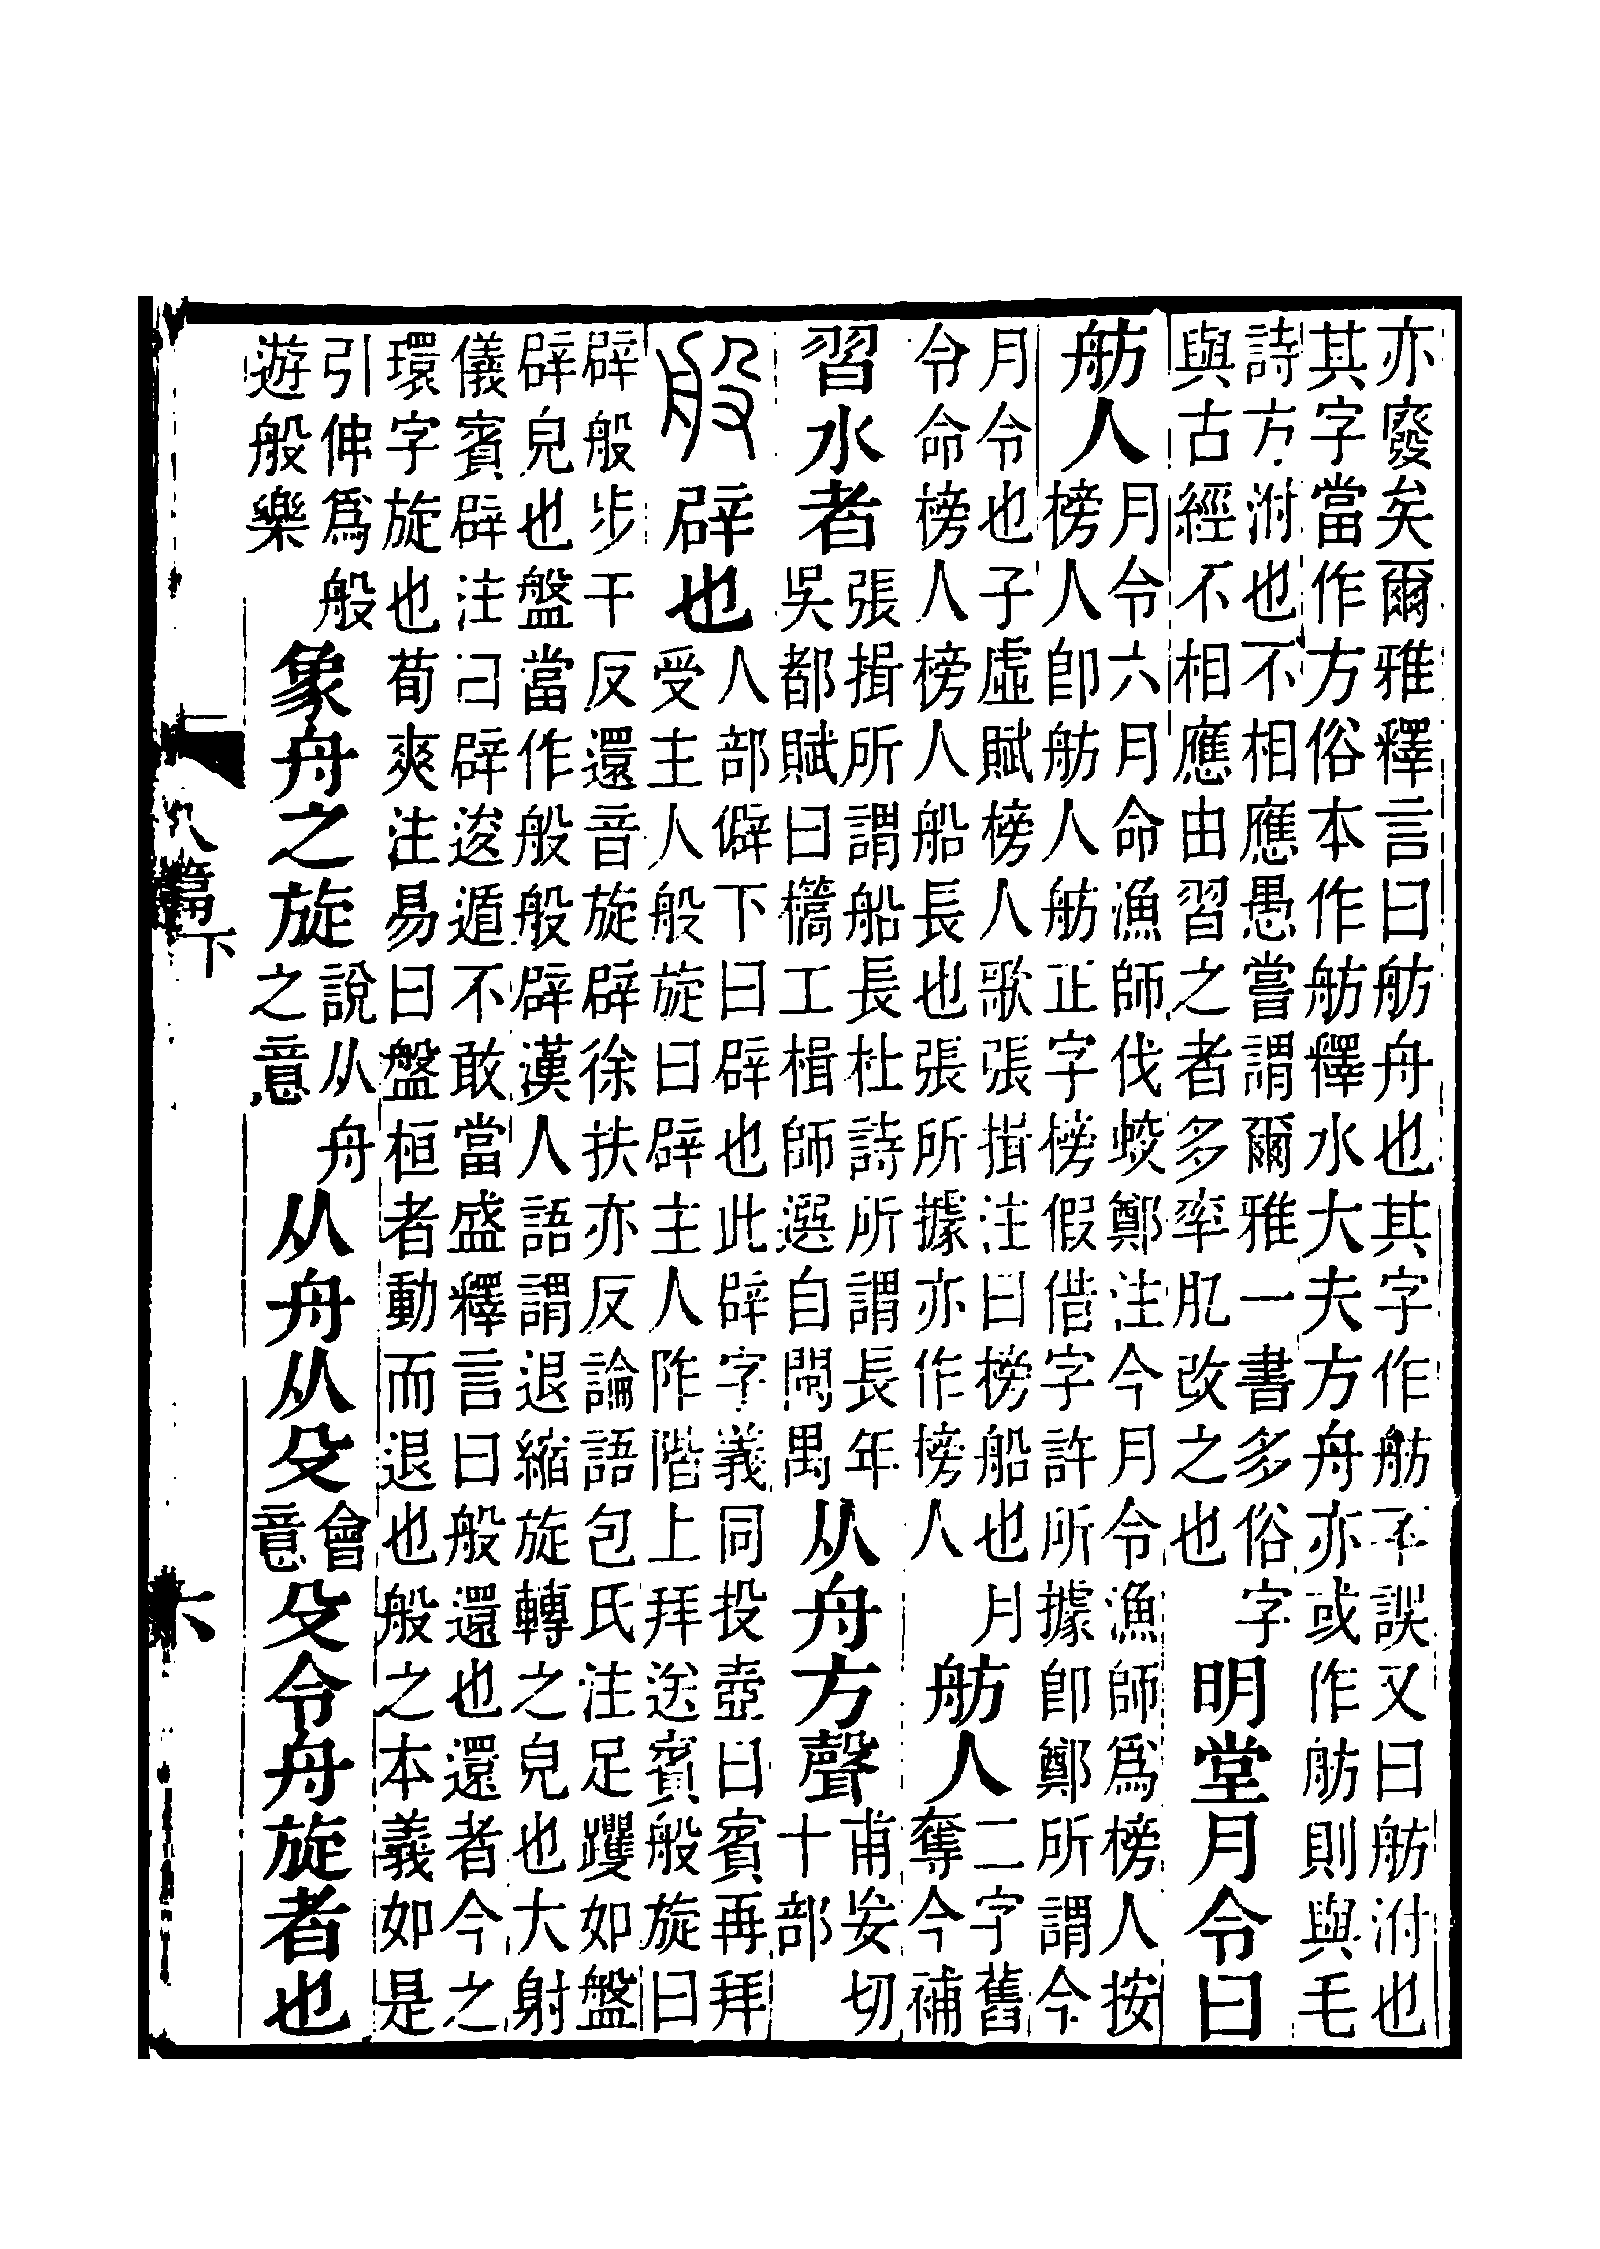 亦廢矣爾雅釋言曰舫舟也其字作舫不誤又曰舫泭也
其字當作方俗本作舫釋水大夫方舟亦或作舫則與毛
詩方泭也不相應愚嘗謂爾雅一書多俗字
與古經不相應由習之者多率肊改之也
明堂月令曰
舫人
月令六月命漁師伐蛟鄭注今月令漁師爲榜人按
榜人卽舫人舫正字榜假借字許所據卽鄭所謂今
月令也子虛賦榜人歌張揖注曰榜船也月
令命榜人榜人船長也張所據亦作榜人
舫人
二字舊
奪今補
習水者
張揖所謂船長杜詩所謂長年
吳都賦曰㰏工楫師選自閩禺
从舟方聲
甫妄切
十部
般
辟也
人部僻下曰辟也此辟字義同投壺曰賓再拜
受主人般旋曰辟主人阼階上拜送賓般旋曰
辟般步干反還音旋辟徐扶亦反論語包氏注足躩如盤
辟皃也盤當作般般辟漢人語謂退縮旋轉之皃也大射
儀賓辟注己辟逡遁不敢當盛釋言曰般還也還者今之
環字旋也荀爽注易曰盤桓者動而退也般之本義如是
引伸爲般
遊般樂
象舟之旋
說从舟
之意
从舟从殳
會
意
殳令舟旋者也
八篇下
六